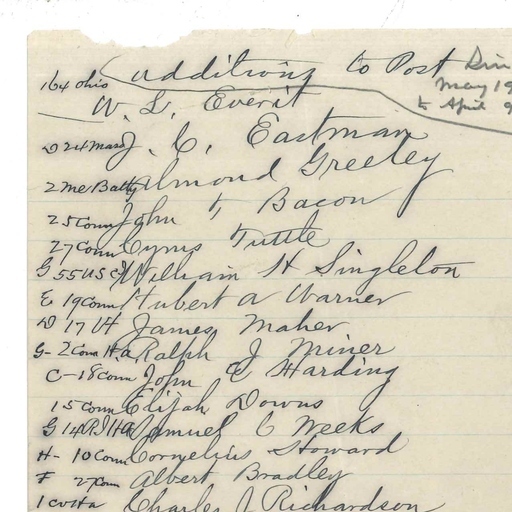 additions to Post
May 19
to April 9
164 Ohio W. L. Everit
D 24 Mass J. C. Eastman
2 Me Batty Almond Greeley
25 Conn John F Bacon
27 Conn Cyrus Tuttle
G 55 US C William H Singleton
E 19 Conn Hubert A Warner
D 17 Vt James Maher
G- 2 Conn Ha Ralph J Miner
C-18 Conn John Harding
15 Conn Elijah Downs
G 14 RI HA Samuel C Weeks
H- 10 Conn Cornelius Stoward
F 27 Conn Albert Bradley
1 CV Ha Charles J Richardson